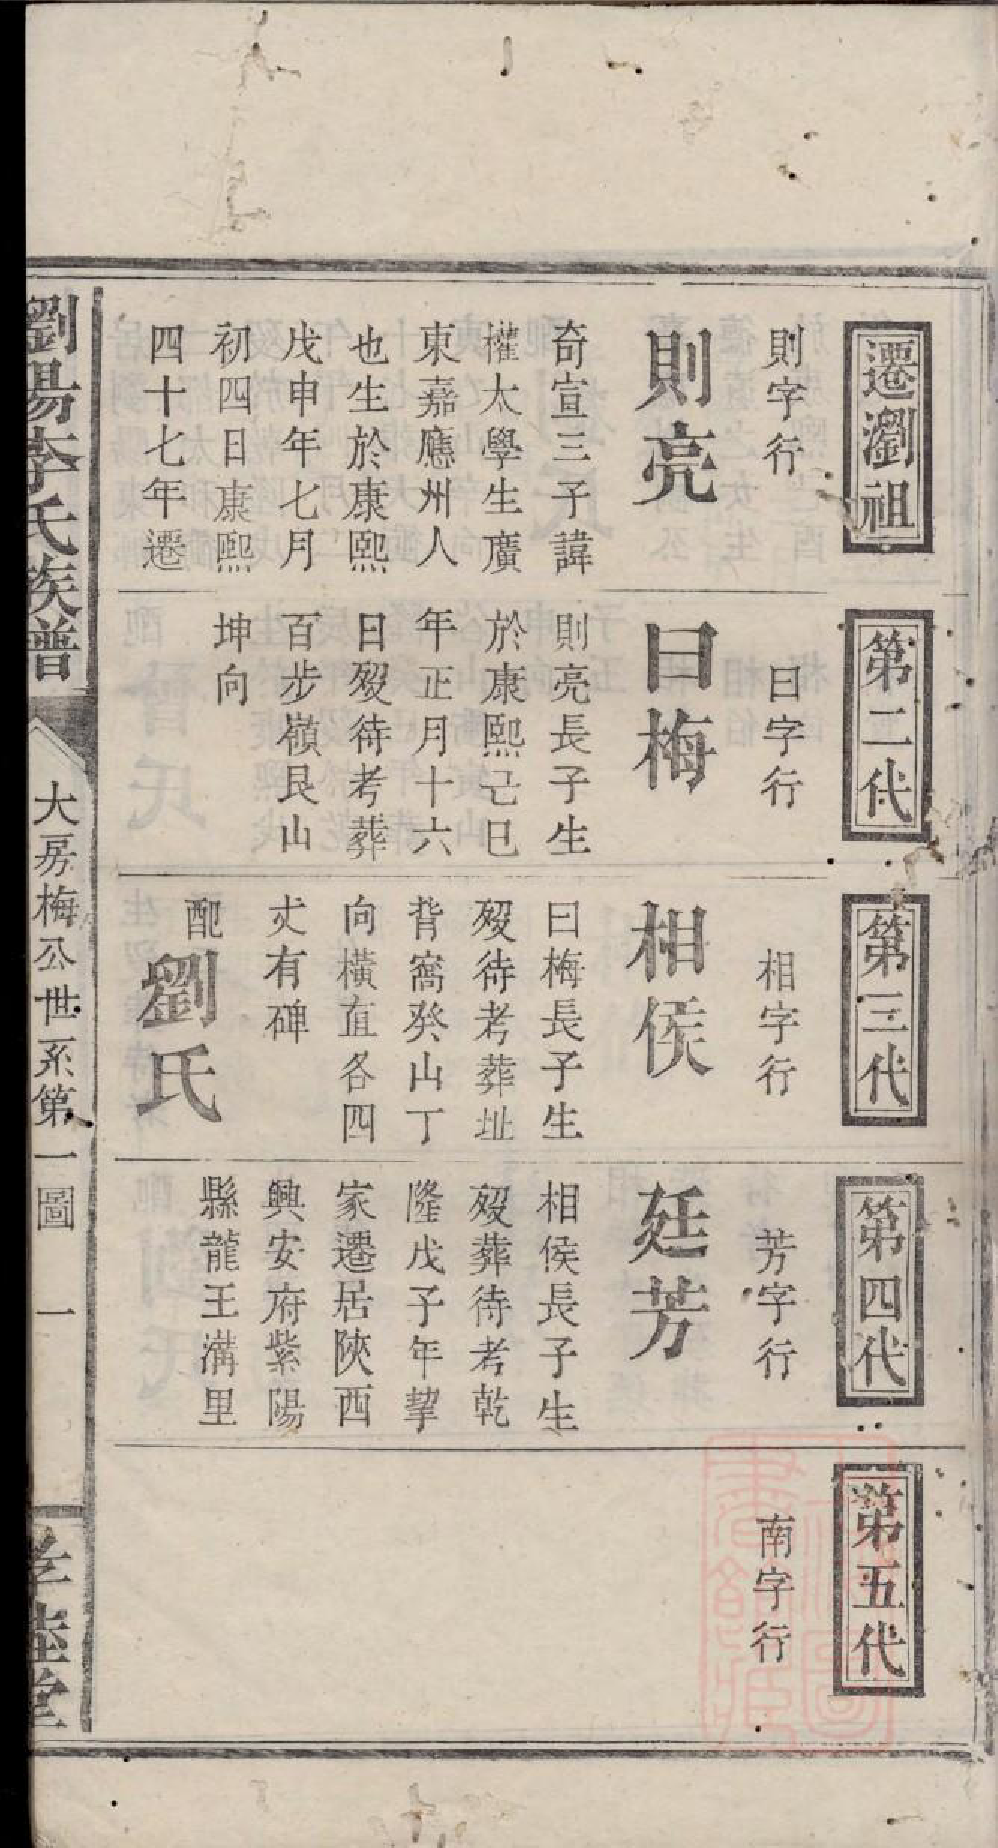 遷瀏祖
則字行
則亮
奇宣三子諱
權太學生廣
東嘉應州人
也生於康熙
戊申年七月
初四日康熙
四十七年遷
第二代
曰字行
曰梅
則亮長子生
於康熙己巳
年正月十六
日歿待考葬
百步嶺艮山
坤向
第三代
相字行
相侯
曰梅長子生
歿待考葬址
背窩癸山丁
向橫直各四
丈有碑
配劉氏
第四代
芳字行
廷芳
相侯長子生
歿葬待考乾
隆戊子年挈
家遷居陝西
興安府紫陽
縣龍王溝里
第五代
南字行
劉陽李氏族譜
大房梅公世系第一圖 一
睦堂